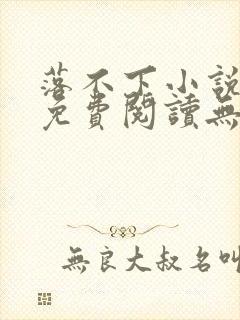 落不下小說
免費閱讀無
無良大叔名叫